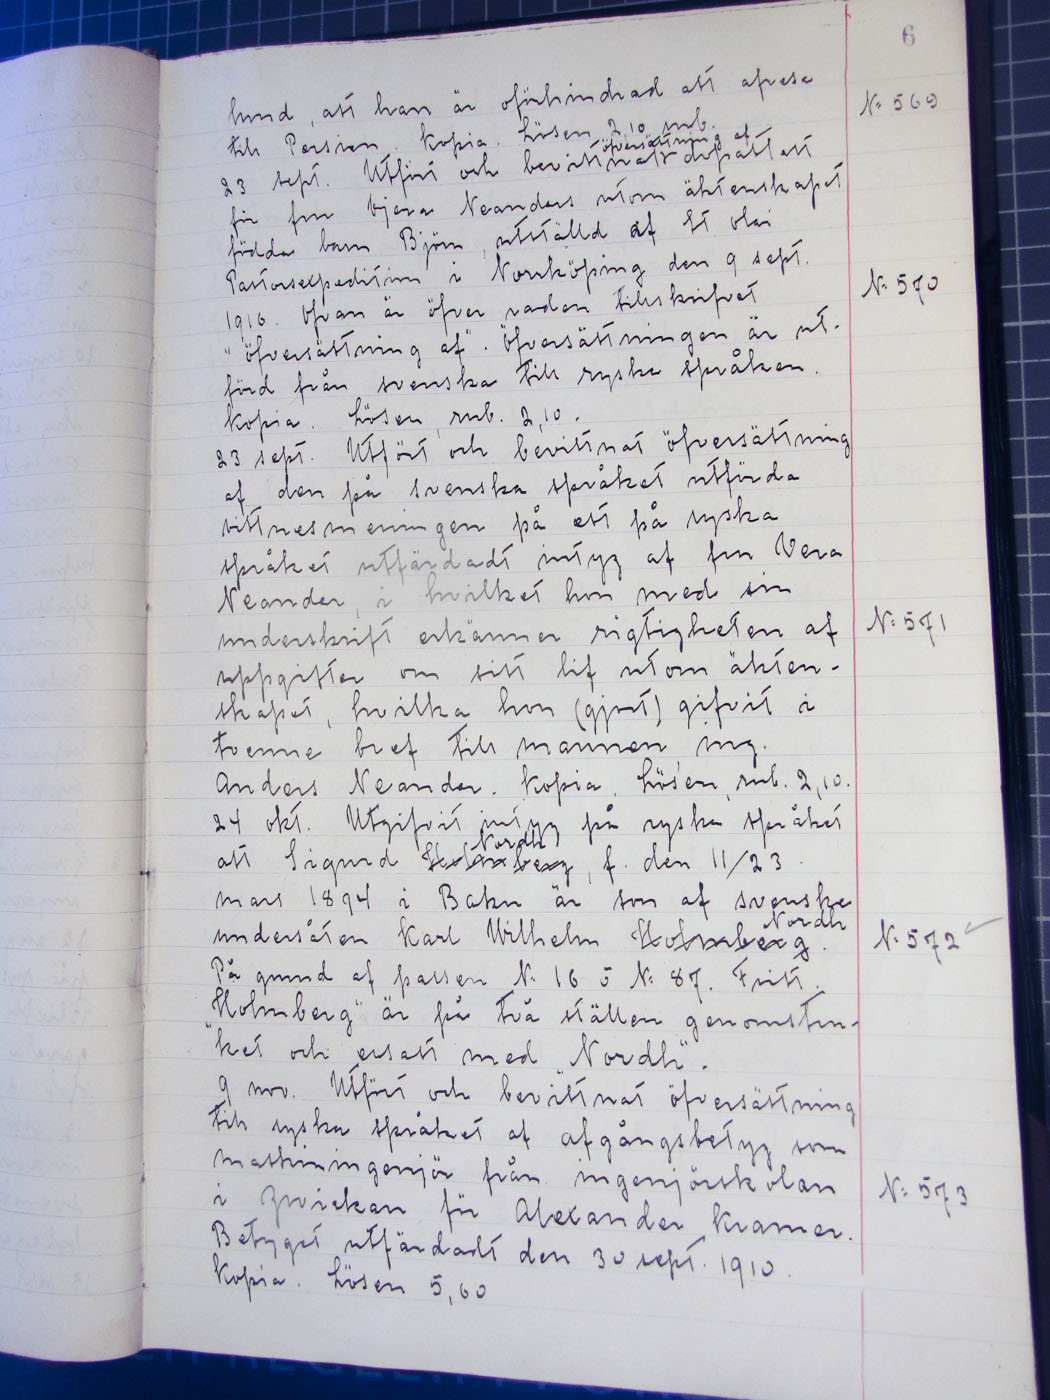 6
lund, att han är oförhindrad att afresa
till Persien. Kopia. Lösen 2,10 rub.
N: 569
öfversättning af
23 sept. Utfört och bevittnat dopattest
för fru Vjera Neanders utom äktenskapet
födda barn Björn, utställd af St Olai
Pastorsexpedition i Norrköping den 9 sept.
1916. Ofvan är öfver raden tillskrifvet
N: 570
"öfversättning af". Öfversättningen är ut-
förd från svenska till ryska språken.
Kopia. Lösen, rub. 2,10.
23 sept. Utfört och bevittnat öfversättning
af den på svenska språket utförda
vittnesmeningen på ett på ryska
språket utfärdadt intyg af fru Vera
Neander, i hvilket hon med sin
underskrift erkänner rigtigheten af
N: 571
uppgifter om sitt lif utom äkten-
skapet, hvilka hon (gjort) gifvit i
tvenne bref till mannen ing.
Anders Neander. Kopia. Lösen, rub. 2,10.
24 okt. Utgifvit intyg på ryska språket
Nordh
att Sigurd Holmberg, f. den 11/23
mars 1894 i Baku är son af svenske
Nordh
undersåten Karl Wilhelm Holmberg.
N: 572
På grund af passen N: 16 o N: 87. Fritt.
"Holmberg" är på två ställen genomstru-
ket och ersatt med "Nordh".
9 nov. Utfört och bevittnat öfversättning
till ryska språket af afgångsbetyg som
maskiningenjör från ingenjörskolan
i Zwickau för Alexander Kramer.
N: 573
Betyget utfärdadt den 30 sept. 1910.
Kopia. Lösen 5,60